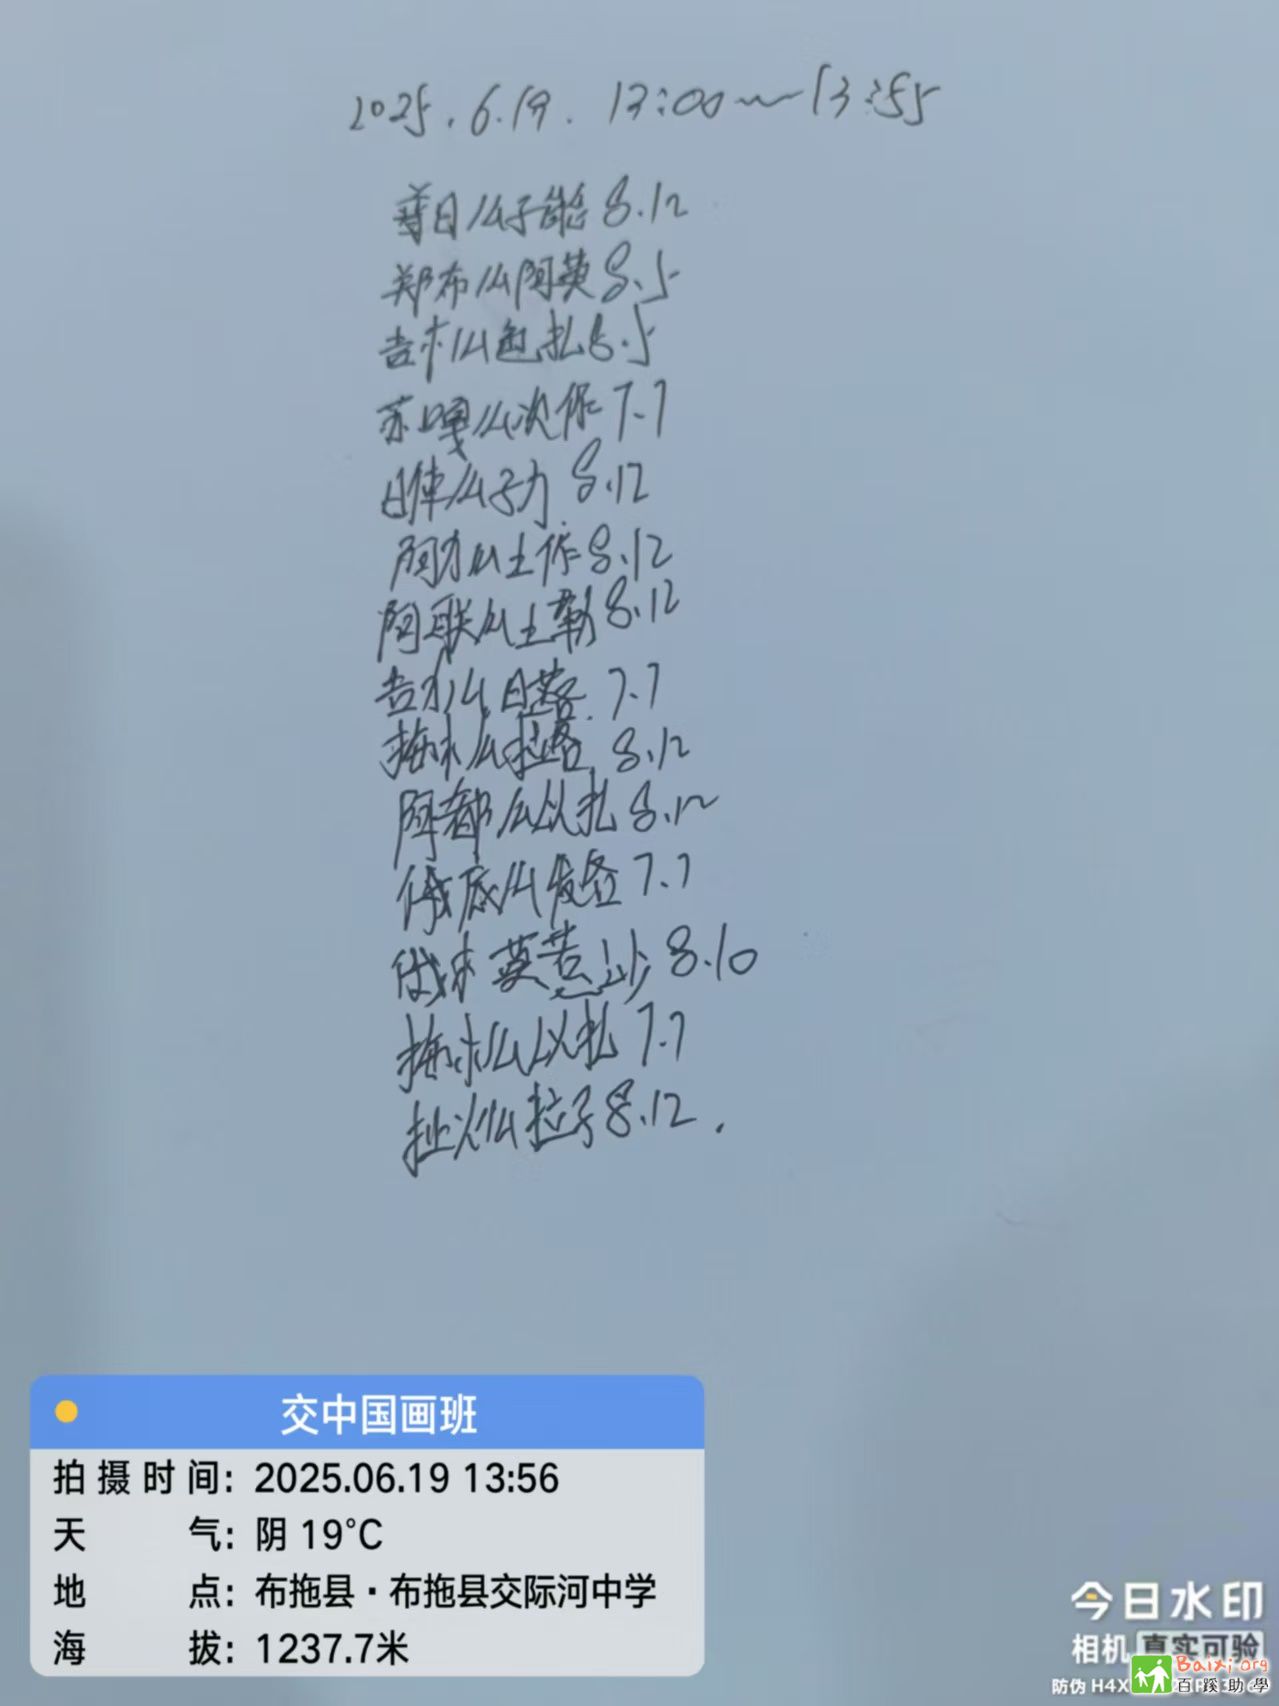 2025.6.19. 13:00~13:55
日么子 8.12
郑布么阿英 8.5
吉木么色扎 8.5
苏嘎么次作 7.7
么子力 8.12
阿木么土作 8.12
阿联么土勒 8.12
吉木么日落 7.7
么拉各 8.12
阿都么以扎 8.12
俄底么发各 7.7
莫苦沙 8.10
么以扎 7.7
么拉子 8.12.
交中国画班
拍摄时间: 2025.06.19 13:56
天气: 阴 19°C
地点: 布拖县·布拖县交际河中学
海拔: 1237.7米
今日水印
相机 真实可验
防伪 H4X
Baixi.org
百蹊助學